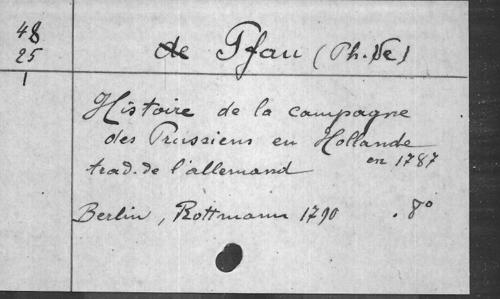 48
25
1
de Pfau (Ph. de)
Histoire de la campagne
des Prussiens en Hollande
en 1787
trad. de l'allemand
Berlin, Rottmann 1790 . 8°